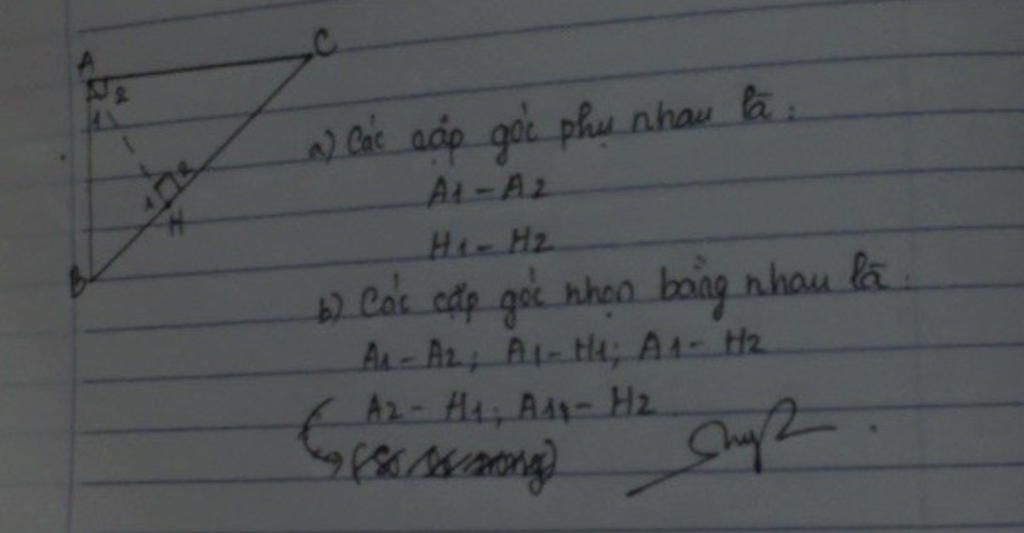 A
C
2
1
2
1
H
B
a) Các cặp góc phụ nhau là:
A1 - A2
H1 - H2
b) Các cặp góc nhọn bằng nhau là:
A1 - A2; A1 - H1; A1 - H2
A2 - H1; - H2